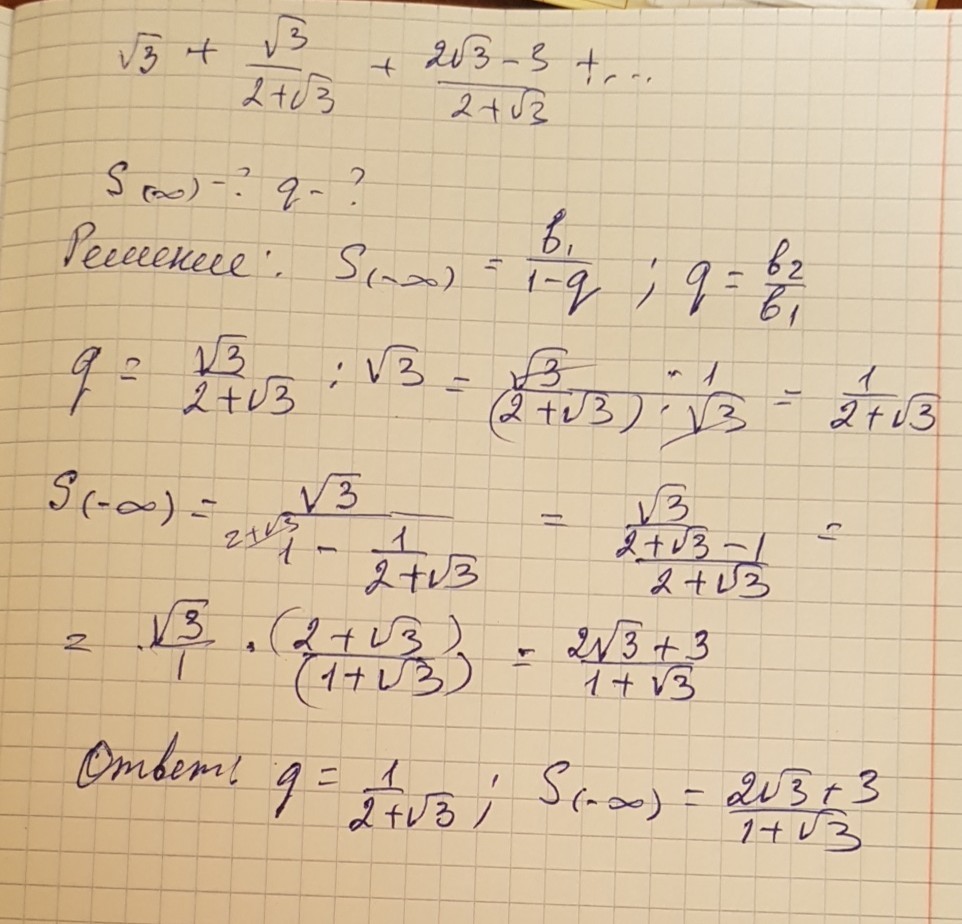 √3 + √3/(2+√3) + (2√3-3)/(2+√3) +...
S(∞)-? q-?
Решение: S(-∞) = b₁/(1-q) ; q = b₂/b₁
q = √3/(2+√3) : √3 = (√3 · 1)/((2+√3) · √3) = 1/(2+√3)
S(-∞) = √3/(1 - 1/(2+√3)) 2+√3 = √3/((2+√3-1)/(2+√3)) =
= √3/1 · (2+√3)/(1+√3) = (2√3+3)/(1+√3)
Ответ: q = 1/(2+√3) ; S(-∞) = (2√3+3)/(1+√3)